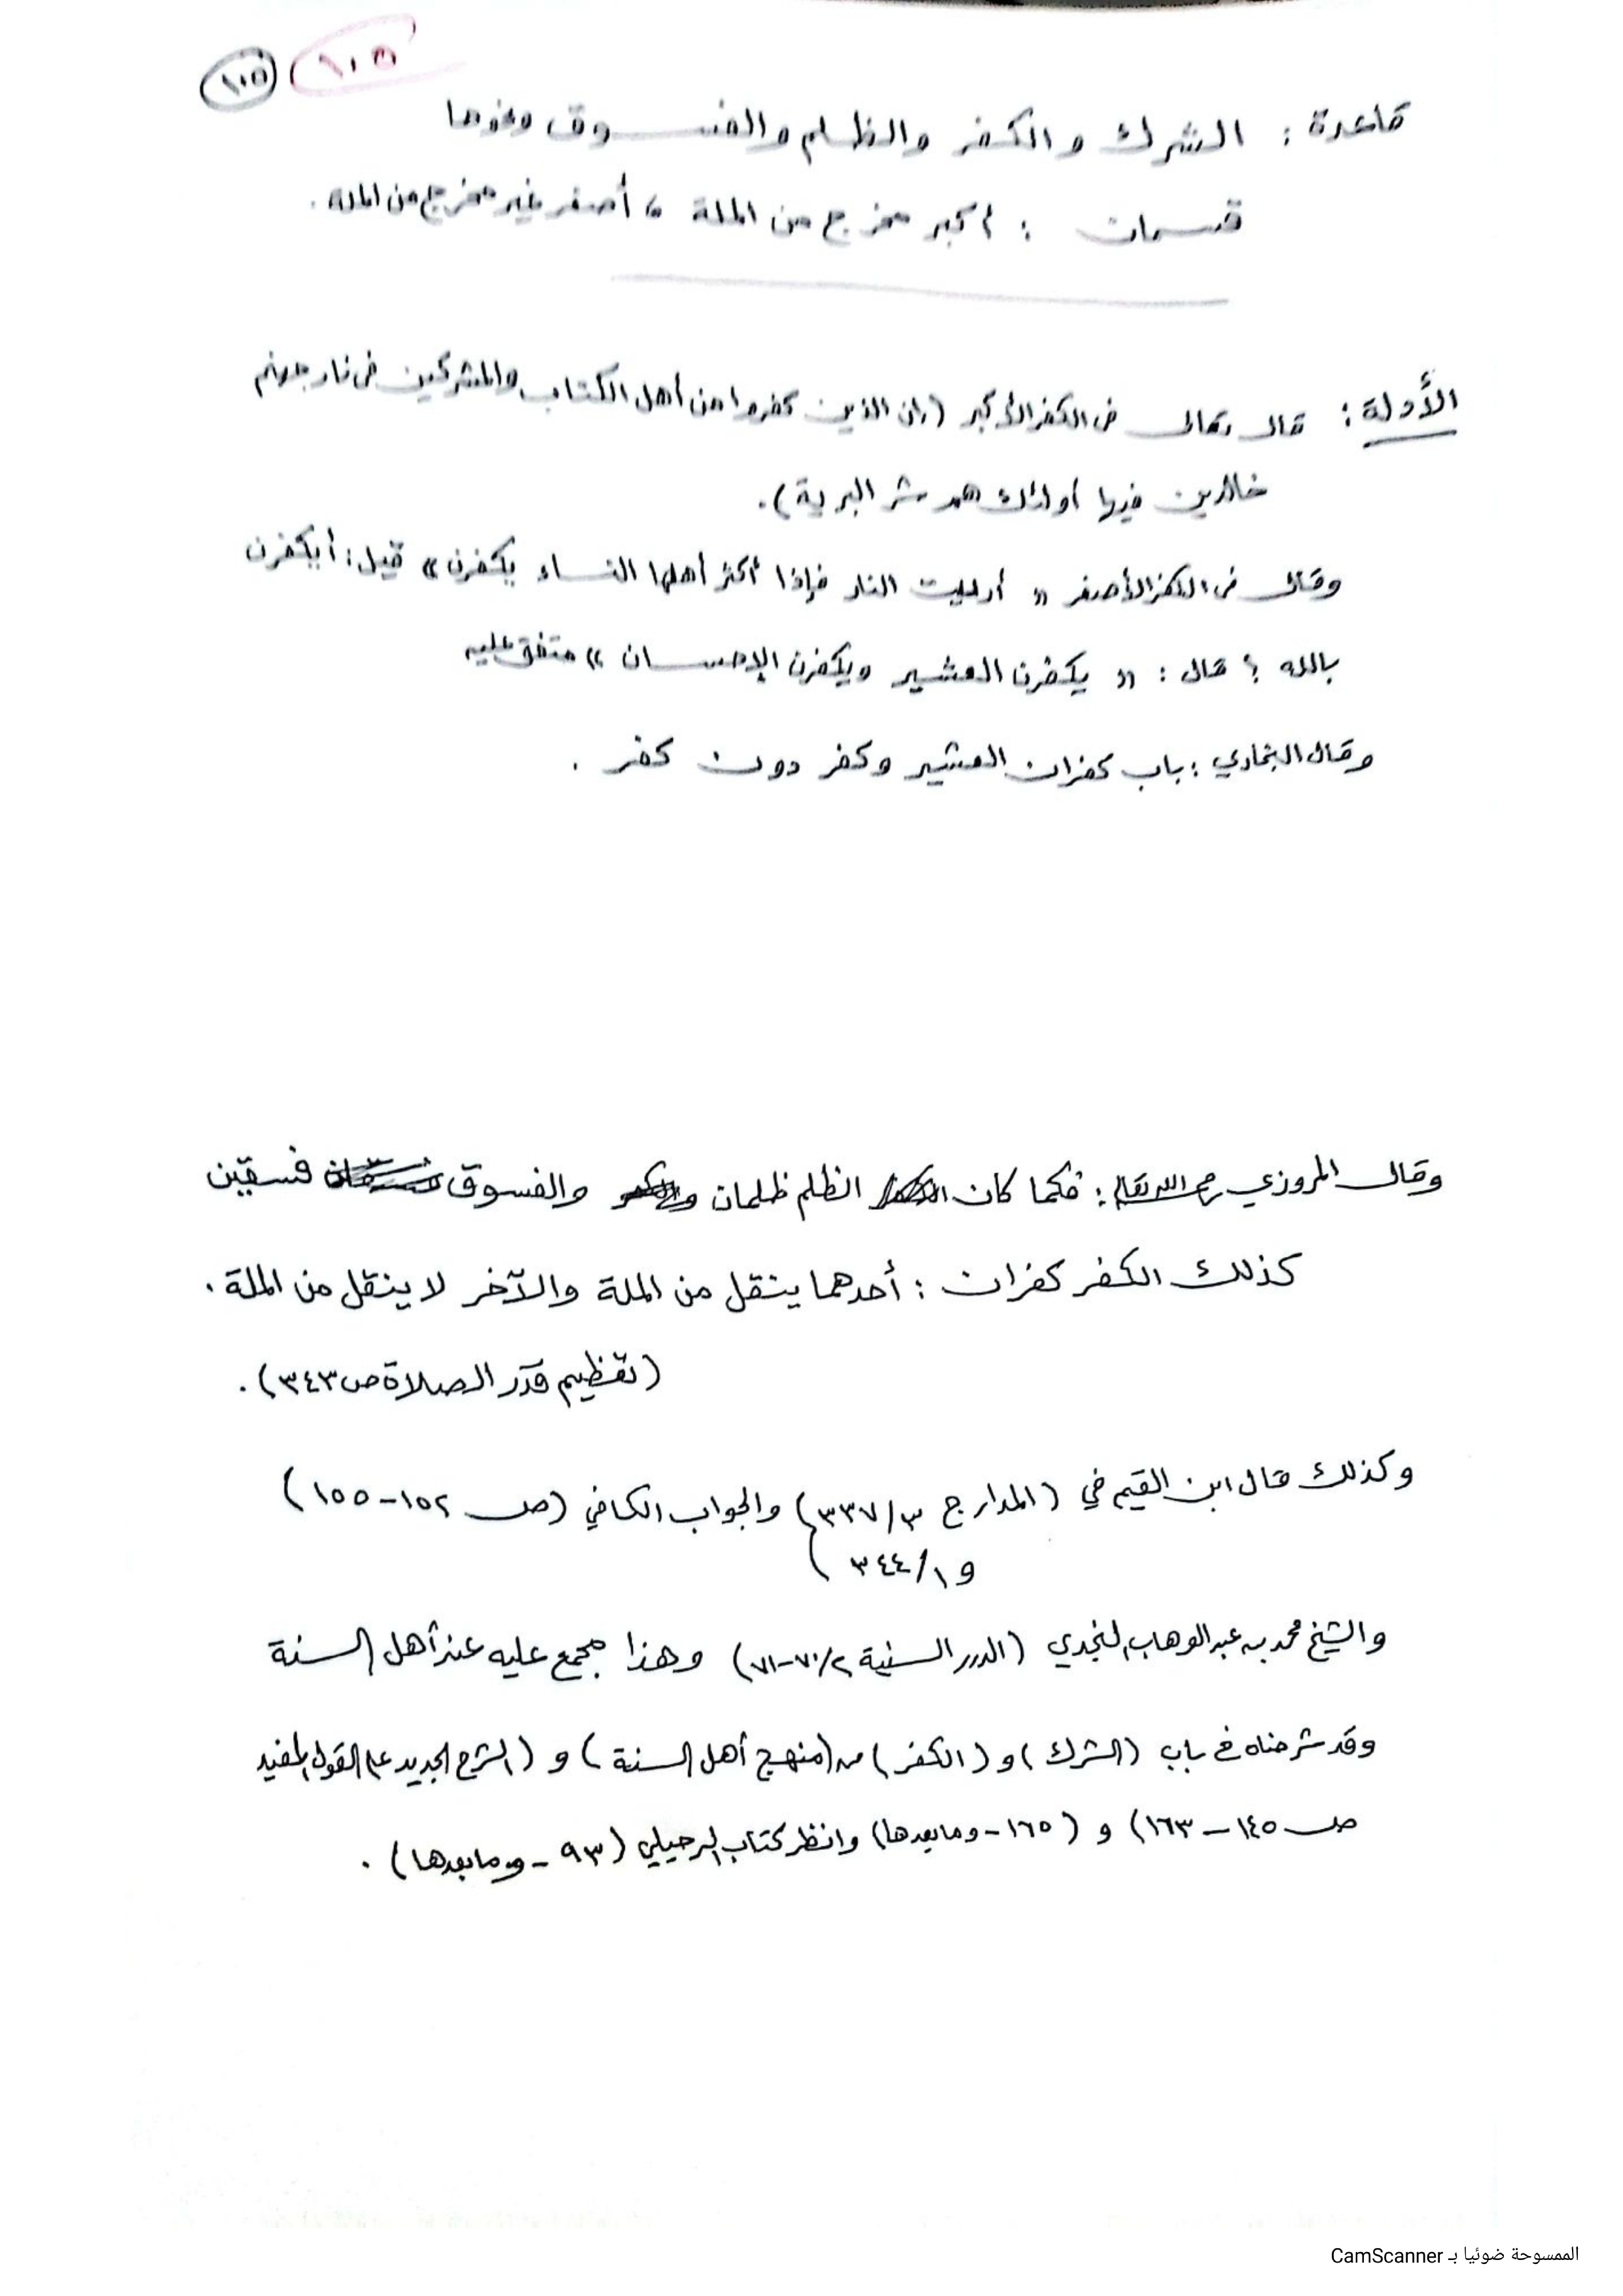 ١٠٥ ١٠٥
قاعدة : الشرك والكفر والظلم والفسوق ونحوها
قسمان : أكبر مخرج من الملة ، أصغر غير مخرج من الملة .
الأدلة : قال تعالى في الكفر الأكبر (إن الذين كفروا من أهل الكتاب والمشركين في نار جهنم
خالدين فيها أولئك هم شر البرية) .
وقال في الكفر الأصغر « أريت النار فإذا أكثر أهلها النساء يكفرن » قيل : أيكفرن
بالله ؟ قال : « يكفرن العشير ويكفرن الإحسان » متفق عليه
وقال البخاري : باب كفران العشير وكفر دون كفر .
وقال المروزي رحمه الله تعالى : فكما كان الظلم ظلمان والفسوق فسقين
كذلك الكفر كفران : أحدهما ينقل من الملة والآخر لا ينقل من الملة .
(تعظيم قدر الصلاة ص ٣٤٣) .
وكذلك قال ابن القيم في (المدارج ٣٣٧/٣) والجواب الكافي (ص ١٥٢-١٥٥)
و ٣٤٤/١)
والشيخ محمد بن عبد الوهاب النجدي (الدرر السنية ٧٠/٢-٧١) وهذا مجمع عليه عند أهل السنة
وقد شرحناه في باب (الشرك) و (الكفر) من (منهج أهل السنة) و (الشرح الجديد على القول المفيد
ص ١٤٥-١٦٣) و (١٦٥ - وما بعدها) وانظر كتاب الرحيلي (٩٣ - وما بعدها) .
الممسوحة ضوئيا بـ CamScanner